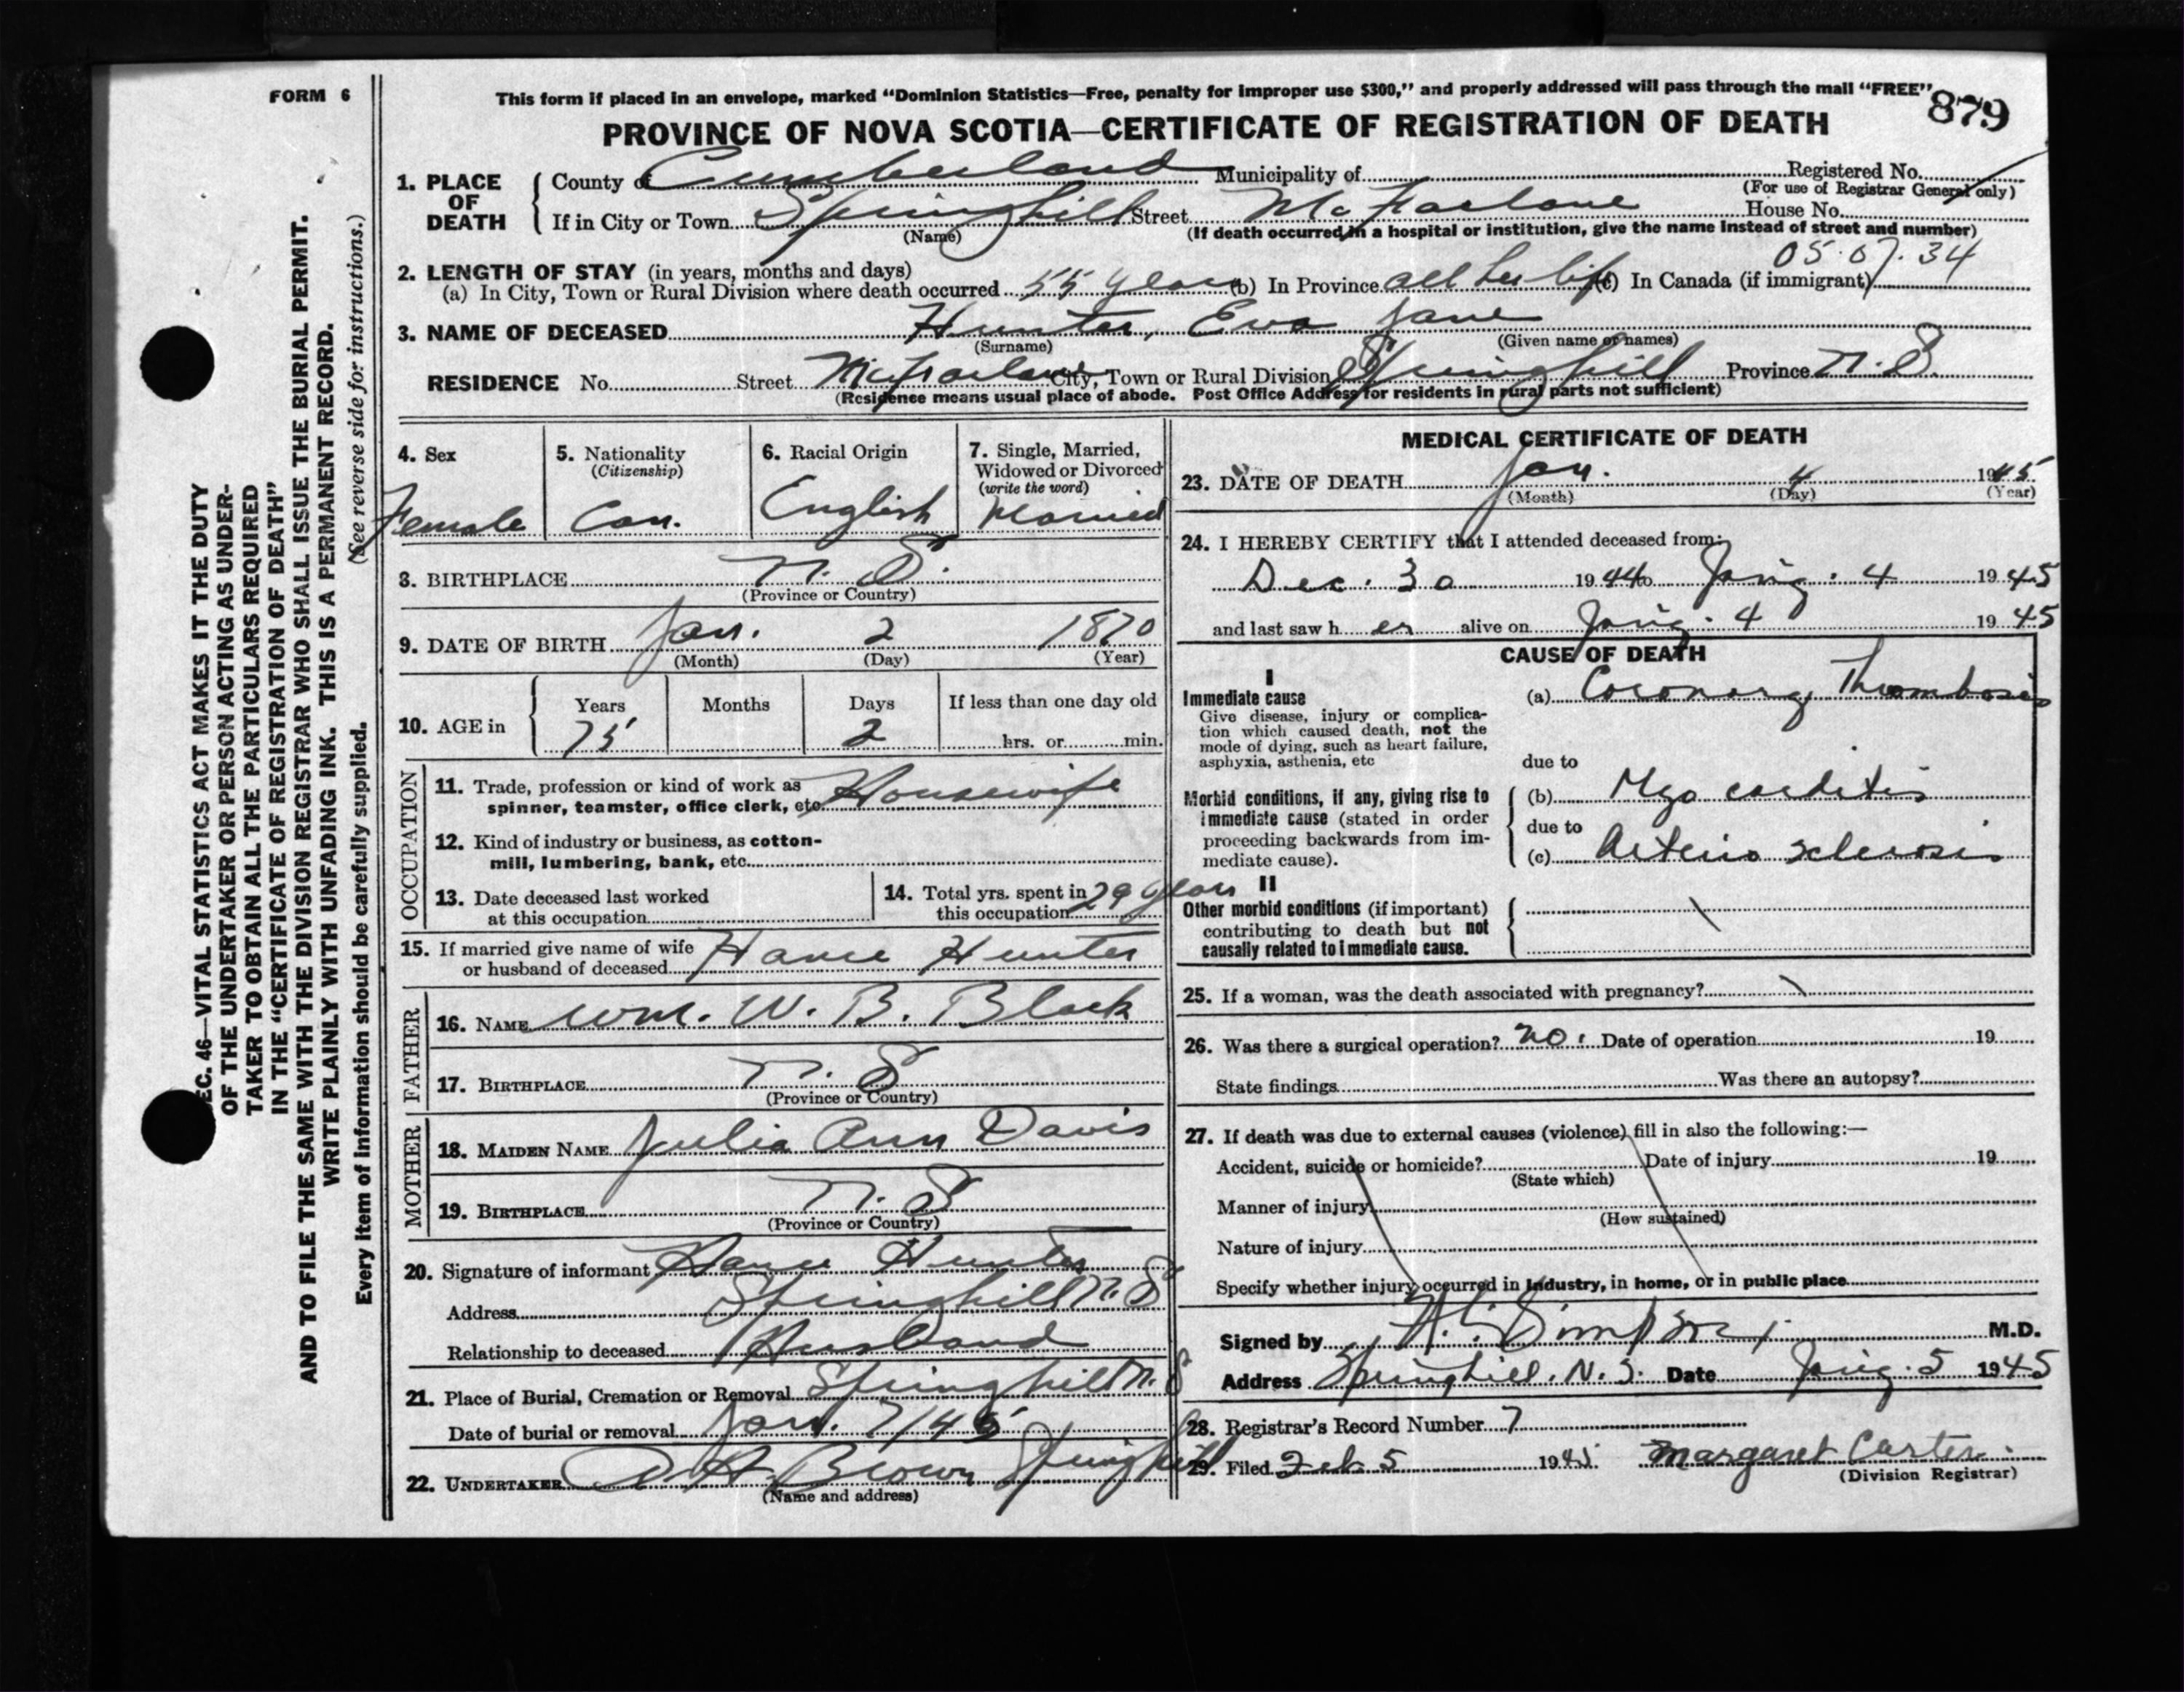 FORM 6
This form if placed in an envelope, marked "Dominion Statistics—Free, penalty for improper use $300," and properly addressed will pass through the mail "FREE"
879
PROVINCE OF NOVA SCOTIA—CERTIFICATE OF REGISTRATION OF DEATH
1. PLACE OF DEATH
County of Cumberland Municipality of Registered No.
(For use of Registrar General only)
If in City or Town Springhill Street McFarlane House No.
(Name) (If death occurred in a hospital or institution, give the name instead of street and number)
05.07.34
2. LENGTH OF STAY (in years, months and days)
(a) In City, Town or Rural Division where death occurred 55 years (b) In Province all her life (c) In Canada (if immigrant)
3. NAME OF DECEASED Hunter, Eva Jane
(Surname) (Given name or names)
RESIDENCE No. Street McFarlane City, Town or Rural Division Springhill Province N.S.
(Residence means usual place of abode. Post Office Address for residents in rural parts not sufficient)
4. Sex
Female
5. Nationality
(Citizenship)
Can.
6. Racial Origin
English
7. Single, Married,
Widowed or Divorced
(write the word)
Married
8. BIRTHPLACE N.S.
(Province or Country)
9. DATE OF BIRTH Jan. 2 1870
(Month) (Day) (Year)
10. AGE in
Years Months Days If less than one day old
75 2 hrs. or min.
OCCUPATION
11. Trade, profession or kind of work as
spinner, teamster, office clerk, etc. Housewife
12. Kind of industry or business, as cotton-
mill, lumbering, bank, etc.
13. Date deceased last worked
at this occupation
14. Total yrs. spent in
this occupation 29 years
15. If married give name of wife
or husband of deceased Hance Hunter
FATHER
16. NAME Wm. W. B. Black
17. BIRTHPLACE N.S
(Province or Country)
MOTHER
18. MAIDEN NAME Julia Ann Davis
19. BIRTHPLACE N.S
(Province or Country)
20. Signature of informant Hance Hunter
Address Springhill N.S
Relationship to deceased Husband
21. Place of Burial, Cremation or Removal Springhill N.S
Date of burial or removal Jan. 7/45
22. UNDERTAKER A H Brown Springhill
(Name and address)
MEDICAL CERTIFICATE OF DEATH
23. DATE OF DEATH Jan. 4 1945
(Month) (Day) (Year)
24. I HEREBY CERTIFY that I attended deceased from:
Dec. 30 1944 to Jany. 4 1945
and last saw her alive on Jany. 4 1945
CAUSE OF DEATH
I
Immediate cause
Give disease, injury or complica-
tion which caused death, not the
mode of dying, such as heart failure,
asphyxia, asthenia, etc
(a) Coronary Thrombosis
due to
Morbid conditions, if any, giving rise to
immediate cause (stated in order
proceeding backwards from im-
mediate cause).
(b) Myocarditis
due to
(c) Arterio sclerosis
II
Other morbid conditions (if important)
contributing to death but not
causally related to immediate cause.
25. If a woman, was the death associated with pregnancy?
26. Was there a surgical operation? no. Date of operation 19
State findings Was there an autopsy?
27. If death was due to external causes (violence) fill in also the following:—
Accident, suicide or homicide? Date of injury 19
(State which)
Manner of injury
(How sustained)
Nature of injury
Specify whether injury occurred in industry, in home, or in public place
Signed by Simpson M.D.
Address Springhill. N.S. Date Jany. 5 1945
28. Registrar's Record Number 7
29. Filed Feb 5 1945 Margaret Carter
(Division Registrar)
EC. 46—VITAL STATISTICS ACT MAKES IT THE DUTY
OF THE UNDERTAKER OR PERSON ACTING AS UNDER-
TAKER TO OBTAIN ALL THE PARTICULARS REQUIRED
IN THE "CERTIFICATE OF REGISTRATION OF DEATH"
AND TO FILE THE SAME WITH THE DIVISION REGISTRAR WHO SHALL ISSUE THE BURIAL PERMIT.
WRITE PLAINLY WITH UNFADING INK. THIS IS A PERMANENT RECORD.
Every item of information should be carefully supplied. (See reverse side for instructions.)